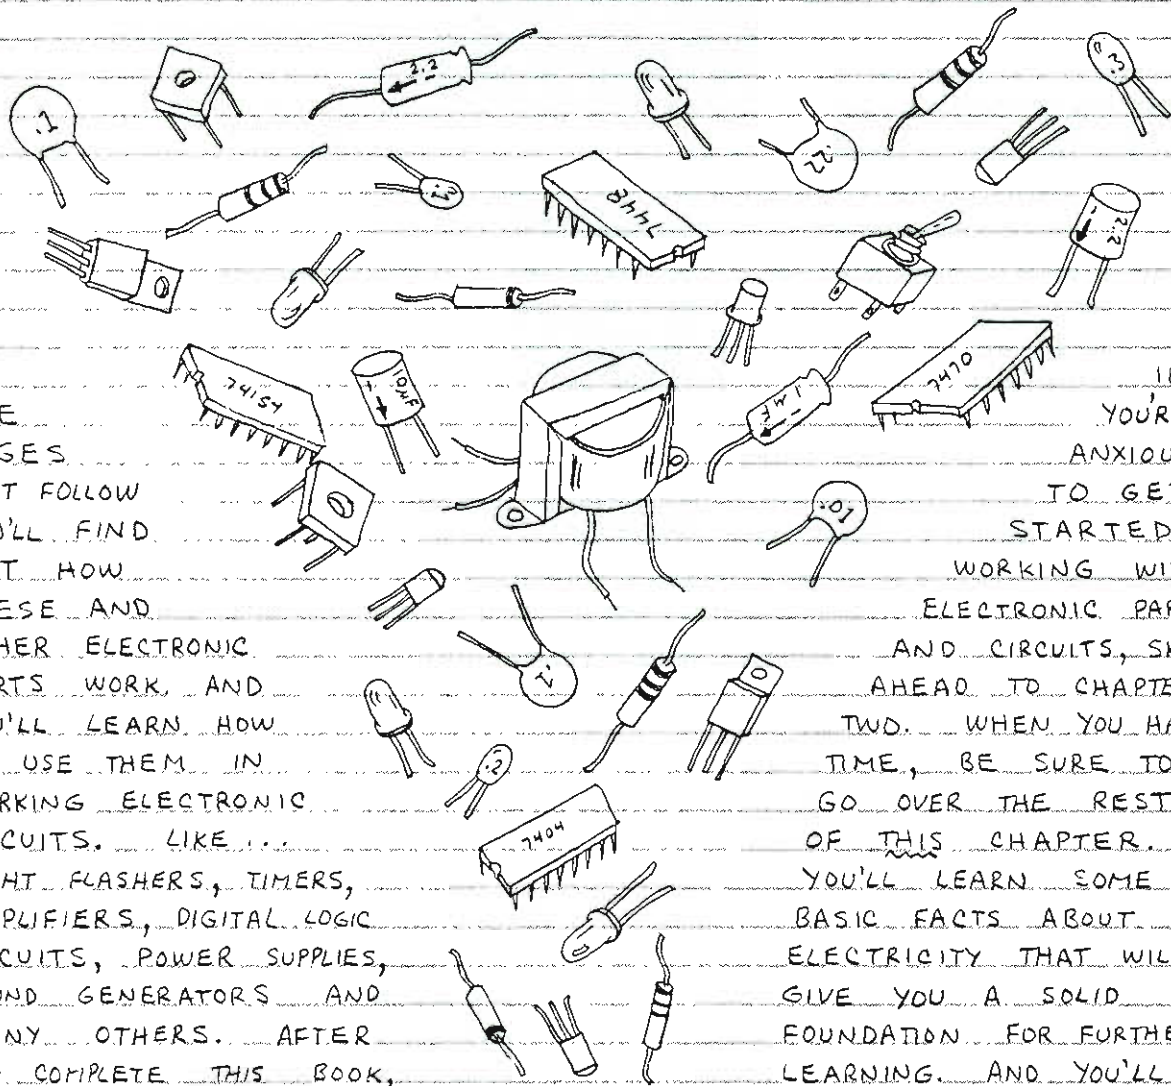 .1
2.2
.3
.22
.3
7448
2.2
74154
10µF
1µF
7470
.01
.1
.2
7404
GES
T FOLLOW
'LL FIND
T HOW
ESE AND
HER ELECTRONIC
RTS WORK AND
U'LL LEARN HOW
USE THEM IN
RKING ELECTRONIC
CUITS. LIKE...
HT FLASHERS, TIMERS,
PLIFIERS, DIGITAL LOGIC
CUITS, POWER SUPPLIES,
UND GENERATORS AND
NY OTHERS. AFTER
COMPLETE THIS BOOK,
YOU'R
ANXIOU
TO GET
STARTED
WORKING WI
ELECTRONIC PAR
AND CIRCUITS, SK
AHEAD TO CHAPTE
TWO. WHEN YOU HA
TIME, BE SURE TO
GO OVER THE REST
OF THIS CHAPTER.
YOU'LL LEARN SOME
BASIC FACTS ABOUT
ELECTRICITY THAT WIL
GIVE YOU A SOLID
FOUNDATION FOR FURTHE
LEARNING. AND YOU'LL